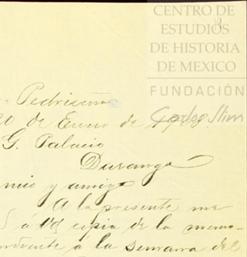 CENTRO DE
ESTUDIOS
DE HISTORIA
DE MEXICO
FUNDACIÓN
Carlos Slim
Pedriseña
de Enero de
G. Palacio
Durango
mio y amigo
A la presente me
á Vd copia de la memo-
á la semana del